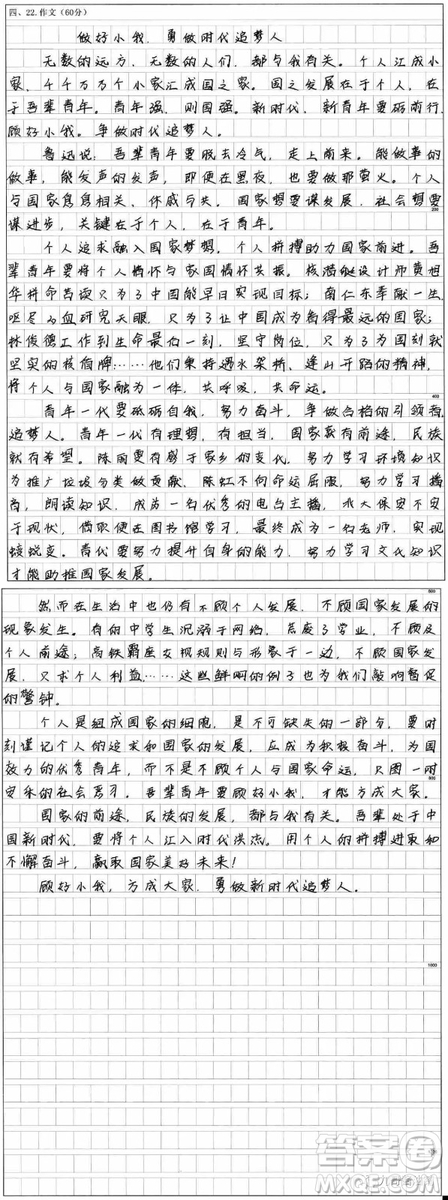 四、22.作文(60分)
做好小我，勇做时代追梦人
无数的远方，无数的人们，都与我有关。个人汇成小
家，千千万万个小家汇成国之家。国之发展在于个人，在
于吾辈青年。青年强，则国强。新时代，新青年要砥砺前行，
顾好小我。争做时代追梦人。
鲁迅说：吾辈青年要脱去冷气，走上前来。能做事的
做事，能发声的发声，即便在黑夜，也要做那萤火。个人
与国家息息相关、休戚与共。国家想要谋发展，社会想要
谋进步，关键在于个人，在于青年。
200
个人追求融入国家梦想，个人拼搏助力国家前进。吾
辈青年要将个人情怀与家国情怀共振。核潜艇设计师黄旭
华拼命苦读只为了中国能早日实现目标；南仁东奉献一生
呕尽心血研究天眼，只为了让中国成为看得最远的国家；
林俊德工作到生命最后一刻，坚守岗位，只为了为国刻就
坚实的核盾牌……他们秉持遇水架桥、逢山开路的精神，
将个人与国家融为一体，共呼吸，共命运。
400
青年一代要砥砺自我，努力奋斗，争做合格的引领者
追梦人。青年一代有理想，有担当，国家就有前途，民族
就有希望。陈国更有感于家乡的变化，努力学习环境知识
为推广垃圾分类做贡献、陈虹不向命运屈服，努力学习播
音，朗读知识，成为一名优秀的电台主播，北大保安不安
于现状，借取便在图书馆学习，最终成为一名老师，实现
蜕变。青代要努力提升自身的能力，努力学习文化知识
才能助推国家发展。
600
然而在生活中也仍有不顾个人发展，不顾国家发展的
现象发生。有的中学生沉溺于网络，荒废了学业，不顾及
个人前途；高铁霸座女视规则与形象于一边，不顾国家发
展，只求个人利益……这些鲜明的例子也为我们敲响警促
的警钟。
个人是组成国家的细胞，是不可缺失的一部分，要时
刻谨记个人的追求和国家的发展，应成为积极奋斗，为国
效力的优秀青年，而不是不顾个人与国家命运，只图一时
800
安乐的社会青年。吾辈青年要顾好小我，才能方成大家。
国家的前途，民族的发展，都与我有关。吾辈处于中
国新时代，要将个人汇入时代洪流。用个人的拼搏进取和
不懈奋斗，赢取国家美好未来！
顾好小我，方成大家，勇做新时代追梦人。
1000
答案圈